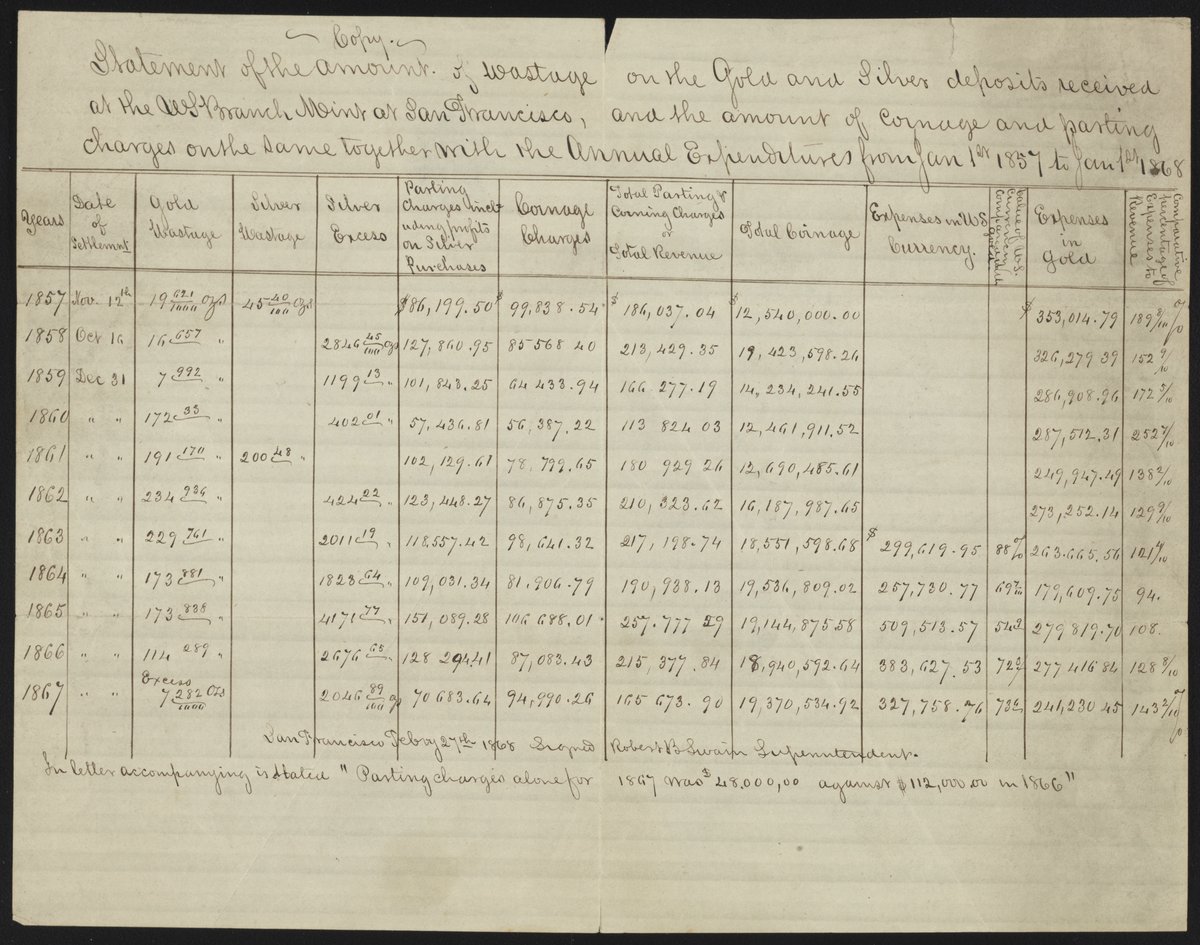 Copy.
Statement of the amount of Wastage on the Gold and Silver deposits received
at the US Branch Mint at San Francisco, and the amount of Coinage and parting
Charges on the same together with the Annual Expenditures from Jan 1st 1857 to Jan 1st 1868
Years | Date of Settlement | Gold Wastage | Silver Wastage | Silver Excess | Parting Charges including profits on Silver Purchases | Coinage Charges | Total Parting & Coining Charges or Total Revenue | Total Coinage | Expenses in U.S. Currency. | Value of U.S. Currency compared with Gold | Expenses in Gold | Comparative percentage of Expenses to Revenue
1857 Nov. 12th 19 621/1000 ozs 45 40/100 ozs $86,199.50 $99,838.54 $186,037.04 $12,540,000.00 $353,014.79 189 8/10 %
1858 Oct 16 16 657 " 2846 45/100 ozs 127,860.95 85568 40 213,429.35 19,423,598.26 326,279 39 152 9/10
1859 Dec 31 7 992 " 1199 13 " 101,843.25 64 433.94 166 277.19 14,234,241.55 286,908.96 172 5/10
1860 " " 172 33 " 402 01 " 57,436.81 56,387.22 113 824 03 12,461,911.52 287,512.31 252 7/10
1861 " " 191 170 " 200 48 " 102,129.61 78,799.65 180 929 26 12,690,485.61 249,947.49 138 2/10
1862 " " 234 936 " 424 22 " 123,448.27 86,875.35 210,323.62 16,187,987.65 273,252.14 129 9/10
1863 " " 229 761 " 2011 19 " 118,557.42 98,641.32 217,198.74 18,551,598.68 $299,619.95 88 % 263.665,56 121 4/10
1864 " " 173 881 " 1823 64 " 109,031.34 81.906.79 190,938.13 19,536,809.02 257,730.77 69 7/10 179,609.75 94.
1865 " " 173 838 " 4171 77 " 151,089.28 106 688.01 257.777 29 19,144,875.58 509,513.57 54 9 279 819.70 108.
1866 " " 114 289 " 2676 65 " 128 294.41 87,083.43 215,377.84 18,940,592.64 383,627.53 72 277 416 84 128 8/10
1867 " " Excess 7 282/1000 ozs 2046 89/100 ozs 70 683.64 94,990.26 165 673.90 19,370,534.92 327,758.76 73 241,230 45 143 2/10 %
San Francisco Feby 27th 1868 Signed Robert B Swain Superintendent.
In letter accompanying is stated "Parting charges alone for 1867 was $48.000,00 against $112,000.00 in 1866"